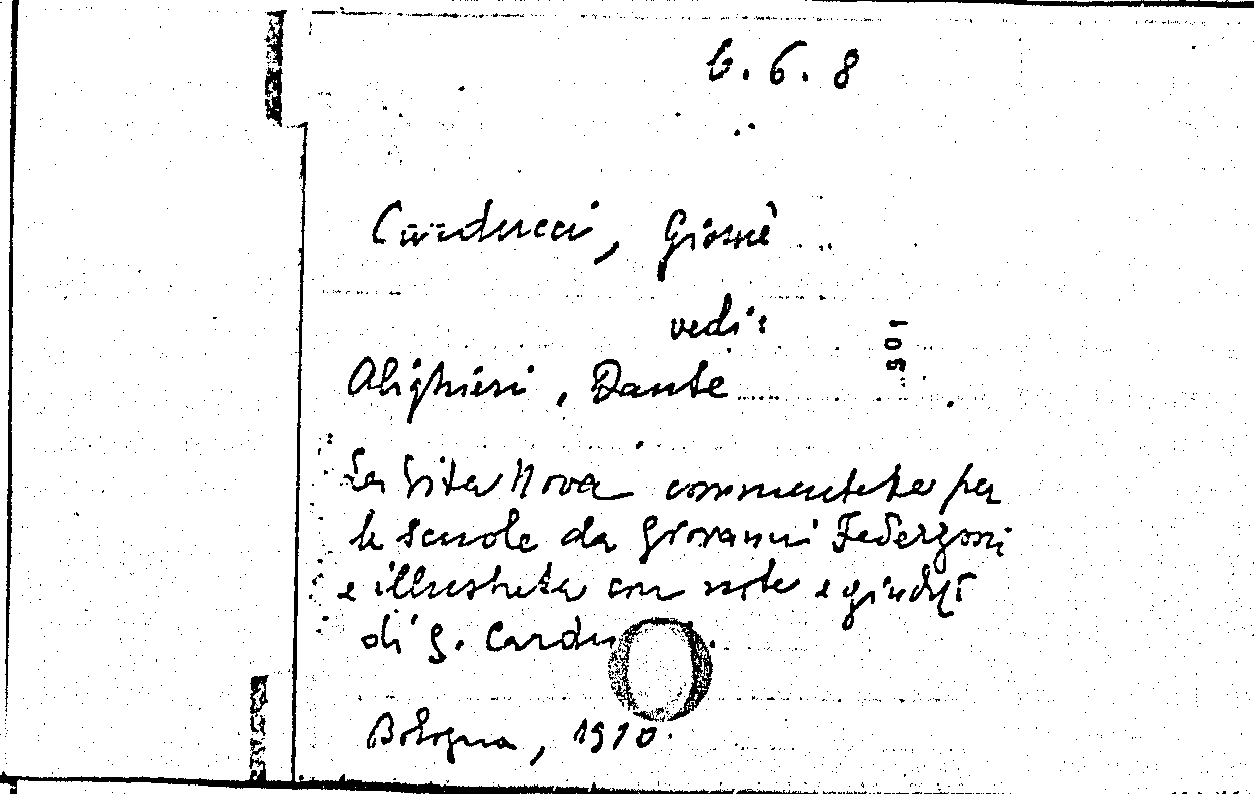 6.6.8
Carducci, Giosuè
vedi:
105
Alighieri, Dante
La Vita Nova commentata per
le scuole da Giovanni Federzoni
e illustrata con note e giudizi
di G. Cardu
Bologna, 1910.